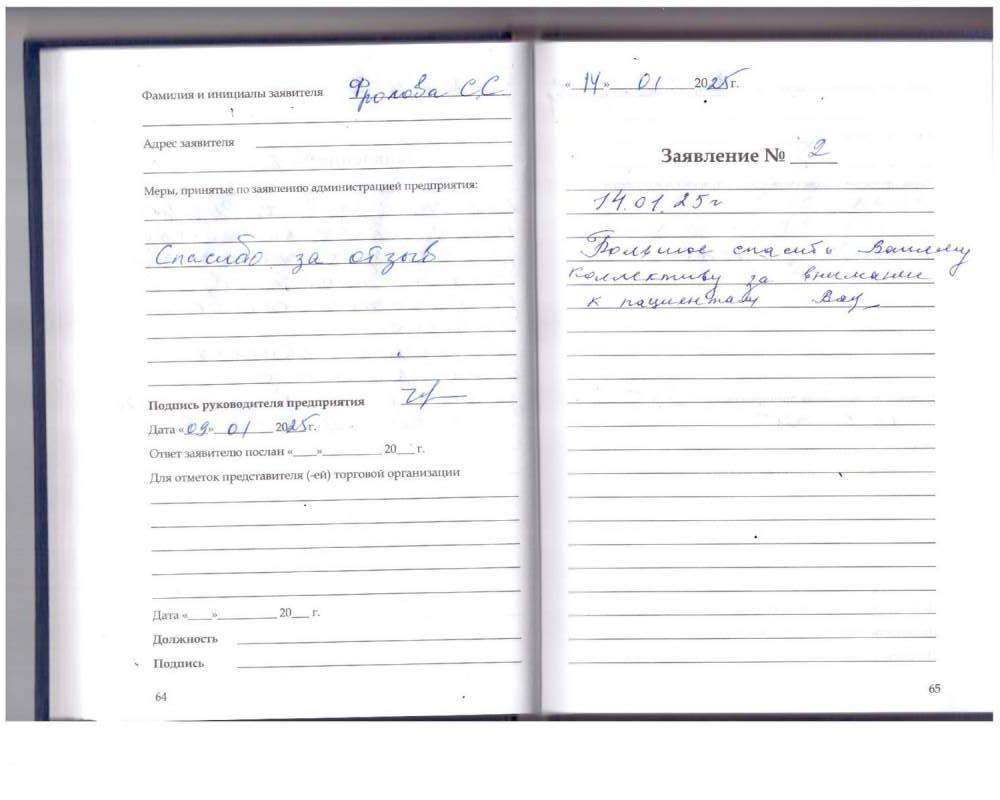 Фамилия и инициалы заявителя Фролова С.С
Адрес заявителя
Меры, принятые по заявлению администрацией предприятия:
Спасибо за отзыв
Подпись руководителя предприятия
Дата «09» 01 2025г.
Ответ заявителю послан «___»__________ 20___ г.
Для отметок представителя (-ей) торговой организации
Дата «____»__________ 20___ г.
Должность
Подпись
64
«14» 01 2025г.
Заявление № 2
14.01.25г
Большое спасибо Вашему
коллективу за внимание
к пациентам
65